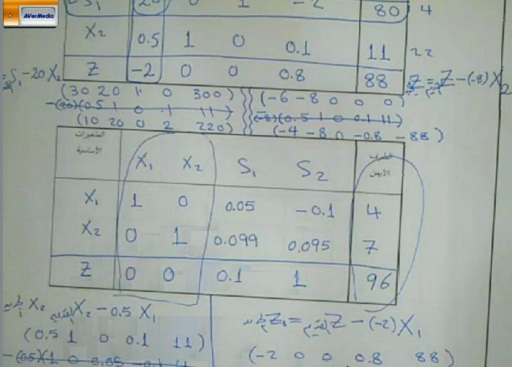 AVerMedia
S₁ 20 0 1 -2 80 4
X₂ 0.5 1 0 0.1 11 22
Z -2 0 0 0.8 88
S₁-20X₂
Z = Z-(-8)X₂
(30 20 1 0 300) (-6 -8 0 0 0)
-(20)(0.5 1 0 0.1 11) -(-8)(0.5 1 0 0.1 11)
(10 20 0 2 220) (-4 -8 0 -0.8 -88)
المتغيرات الأساسية X₁ X₂ S₁ S₂ الطرف الأيمن
X₁ 1 0 0.05 -0.1 4
X₂ 0 1 0.099 0.095 7
Z 0 0 0.1 1 96
X₂ X₂-0.5X₁
Z₁= Z-(-2)X₁
(0.5 1 0 0.1 11) (-2 0 0 0.8 88)
-(0.5)(1 0 0.05 -0.1 4